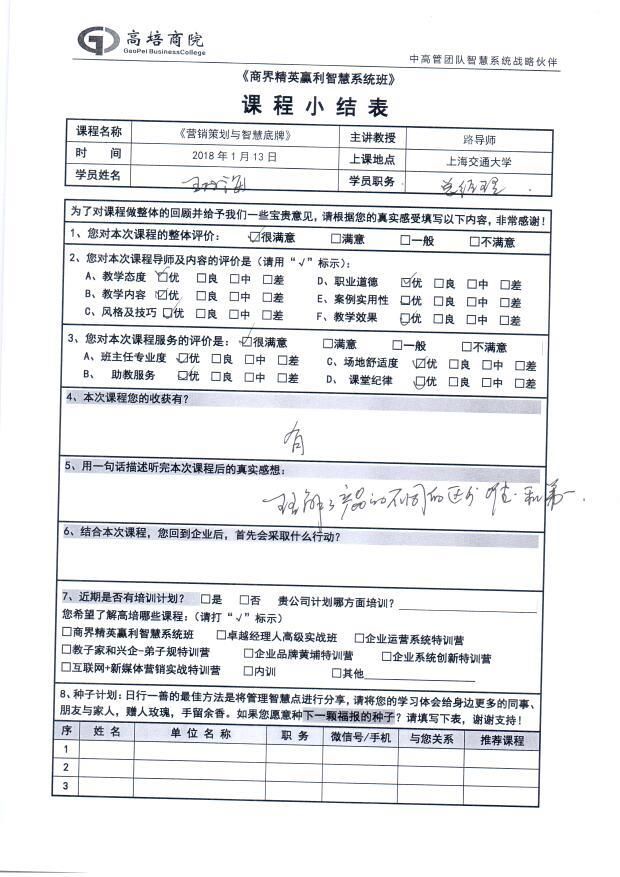 高培商院
GaoPei BusinessCollege
中高管团队智慧系统战略伙伴
《商界精英赢利智慧系统班》
课程小结表
课程名称 《营销策划与智慧底牌》 主讲教授 路导师
时 间 2018年1月13日 上课地点 上海交通大学
学员姓名 学员职务 总经理
为了对课程做整体的回顾并给予我们一些宝贵意见，请根据您的真实感受填写以下内容，非常感谢！
1、您对本次课程的整体评价： ☑很满意 □满意 □一般 □不满意
2、您对本次课程导师及内容的评价是（请用“√”标示）：
A、教学态度 ☑优 □良 □中 □差 D、职业道德 ☑优 □良 □中 □差
B、教学内容 ☑优 □良 □中 □差 E、案例实用性 ☑优 □良 □中 □差
C、风格及技巧 ☑优 □良 □中 □差 F、教学效果 ☑优 □良 □中 □差
3、您对本次课程服务的评价是： ☑很满意 □满意 □一般 □不满意
A、班主任专业度 ☑优 □良 □中 □差 C、场地舒适度 ☑优 □良 □中 □差
B、 助教服务 ☑优 □良 □中 □差 D、 课堂纪律 ☑优 □良 □中 □差
4、本次课程您的收获有？
有
5、用一句话描述听完本次课程后的真实感想：
产品的不同的区分 和第一.
6、结合本次课程，您回到企业后，首先会采取什么行动？
7、近期是否有培训计划？ □是 □否 贵公司计划哪方面培训？
您希望了解高培哪些课程：（请打“√”标示）
□商界精英赢利智慧系统班 □卓越经理人高级实战班 □企业运营系统特训营
□教子家和兴企-弟子规特训营 □企业品牌黄埔特训营 □企业系统创新特训营
□互联网+新媒体营销实战特训营 □内训 □其他
8、种子计划：日行一善的最佳方法是将管理智慧点进行分享，请将您的学习体会给身边更多的同事、
朋友与家人，赠人玫瑰，手留余香。如果您愿意种下一颗福报的种子？请填写下表，谢谢支持！
序 姓 名 单 位 名 称 职 务 微信号/手机 与您关系 推荐课程
1
2
3